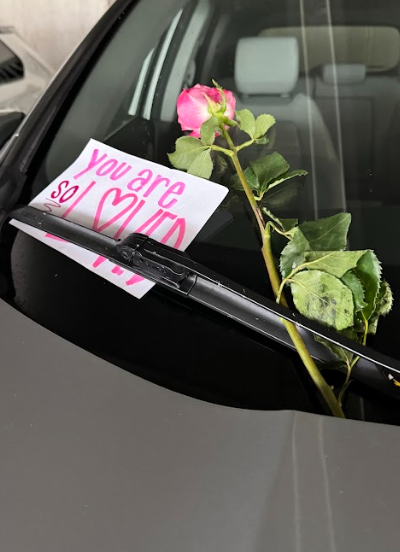 you are
so L♡VED